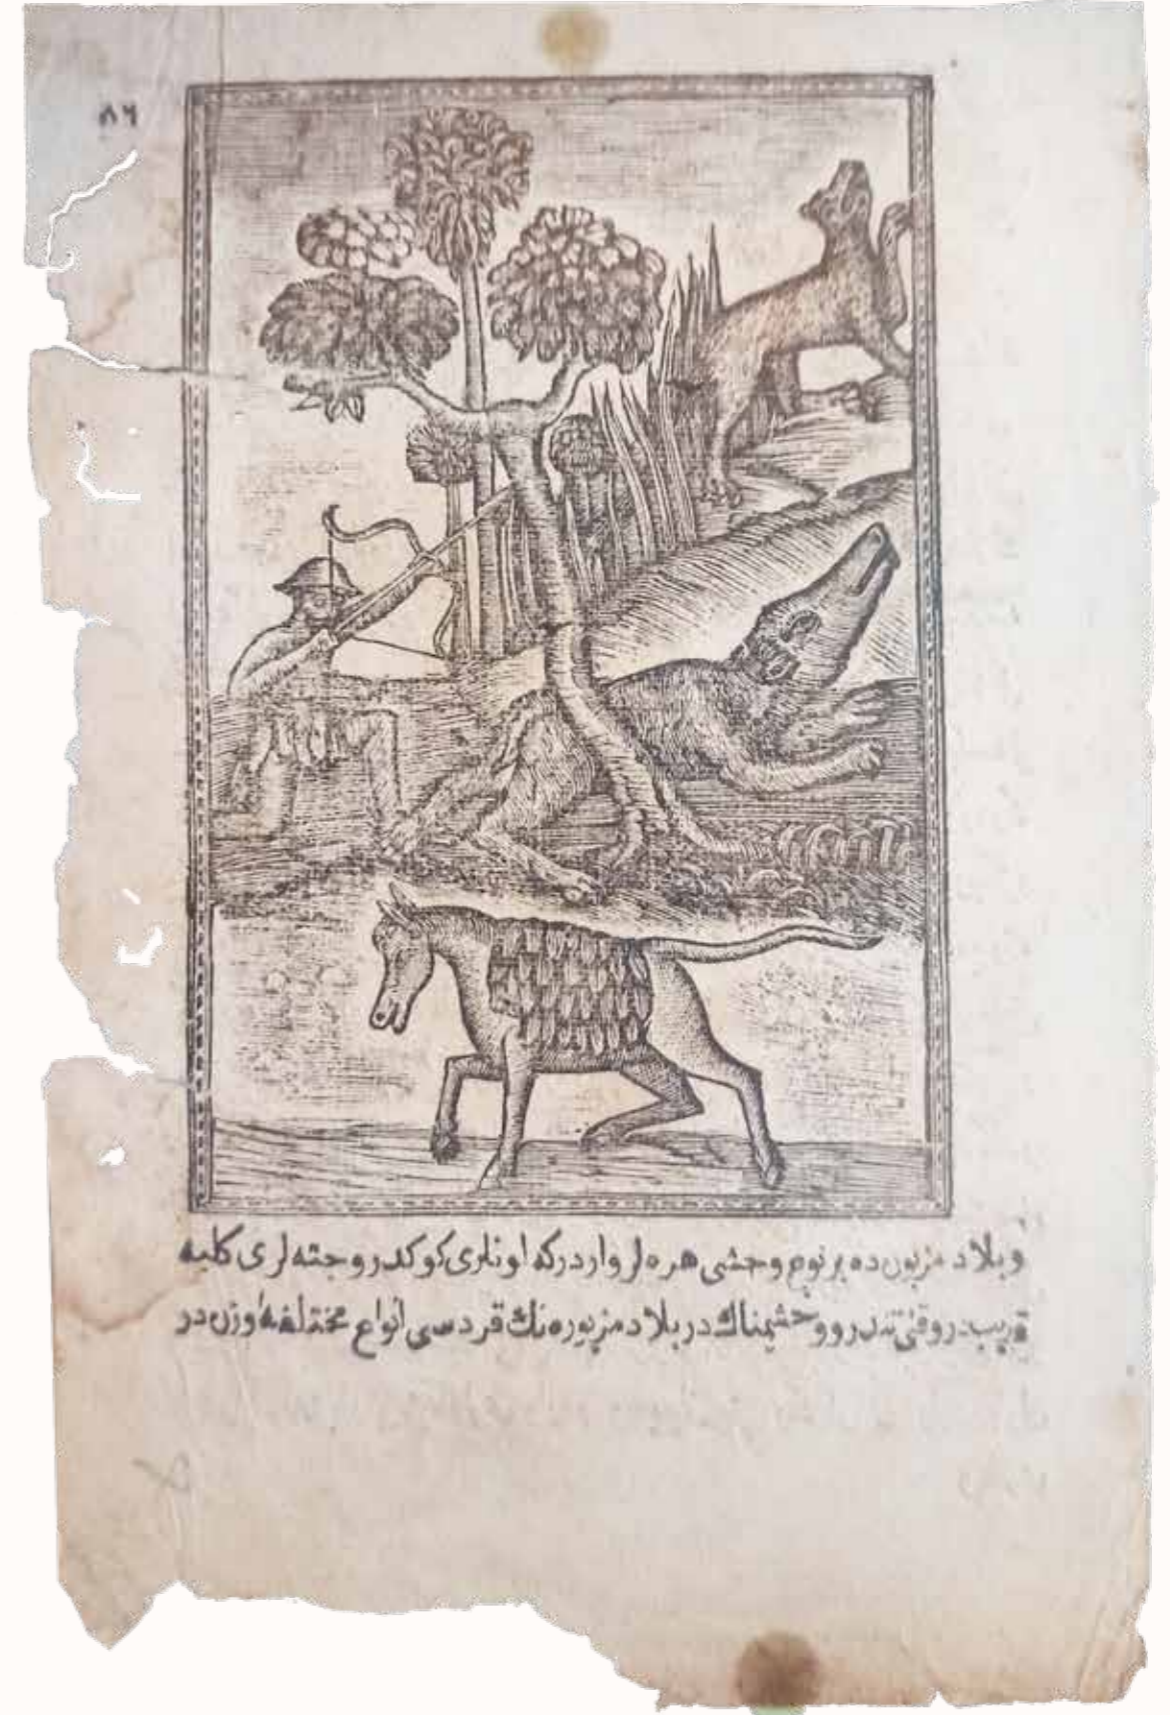 ٨٦
وبلاد مزبورده بر نوع وحشی هره لر واردرکه اونلری کوکدر وجثه لری کلبه
قریبدر وقتی تند رو وخشمناك در بلاد مزبوره نك قردسی انواع مختلفه اوزن در